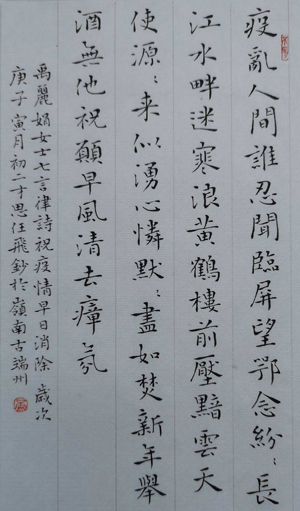 疫亂人間誰忍聞臨屏望鄂念紛〻長
江水畔迷寒浪黃鶴樓前壓黯雲天
使源〻来似湧心憐默〻盡如焚新年舉
酒無他祝願早風清去瘴氛
禹麗娟女士七言律詩祝疫情早日消除 歲次
庚子寅月初二才思任飛鈔於嶺南古端州